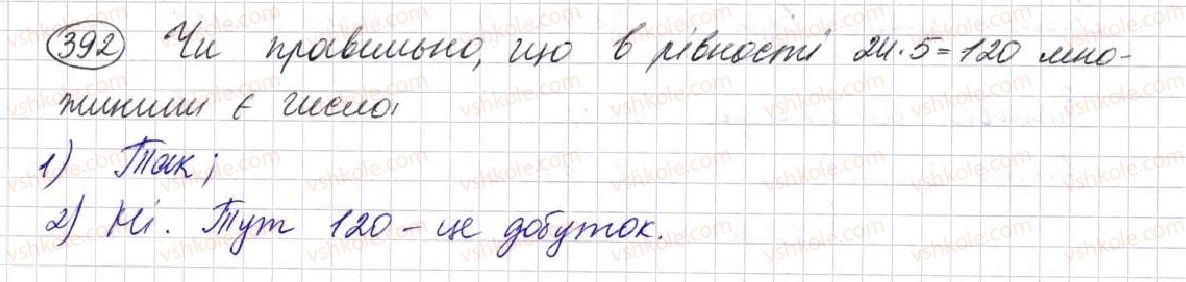 392 Чи правильно, що в рівності 24·5=120 мно-
жиними є числа
1) Так;
2) Ні. Тут 120 – це добуток.